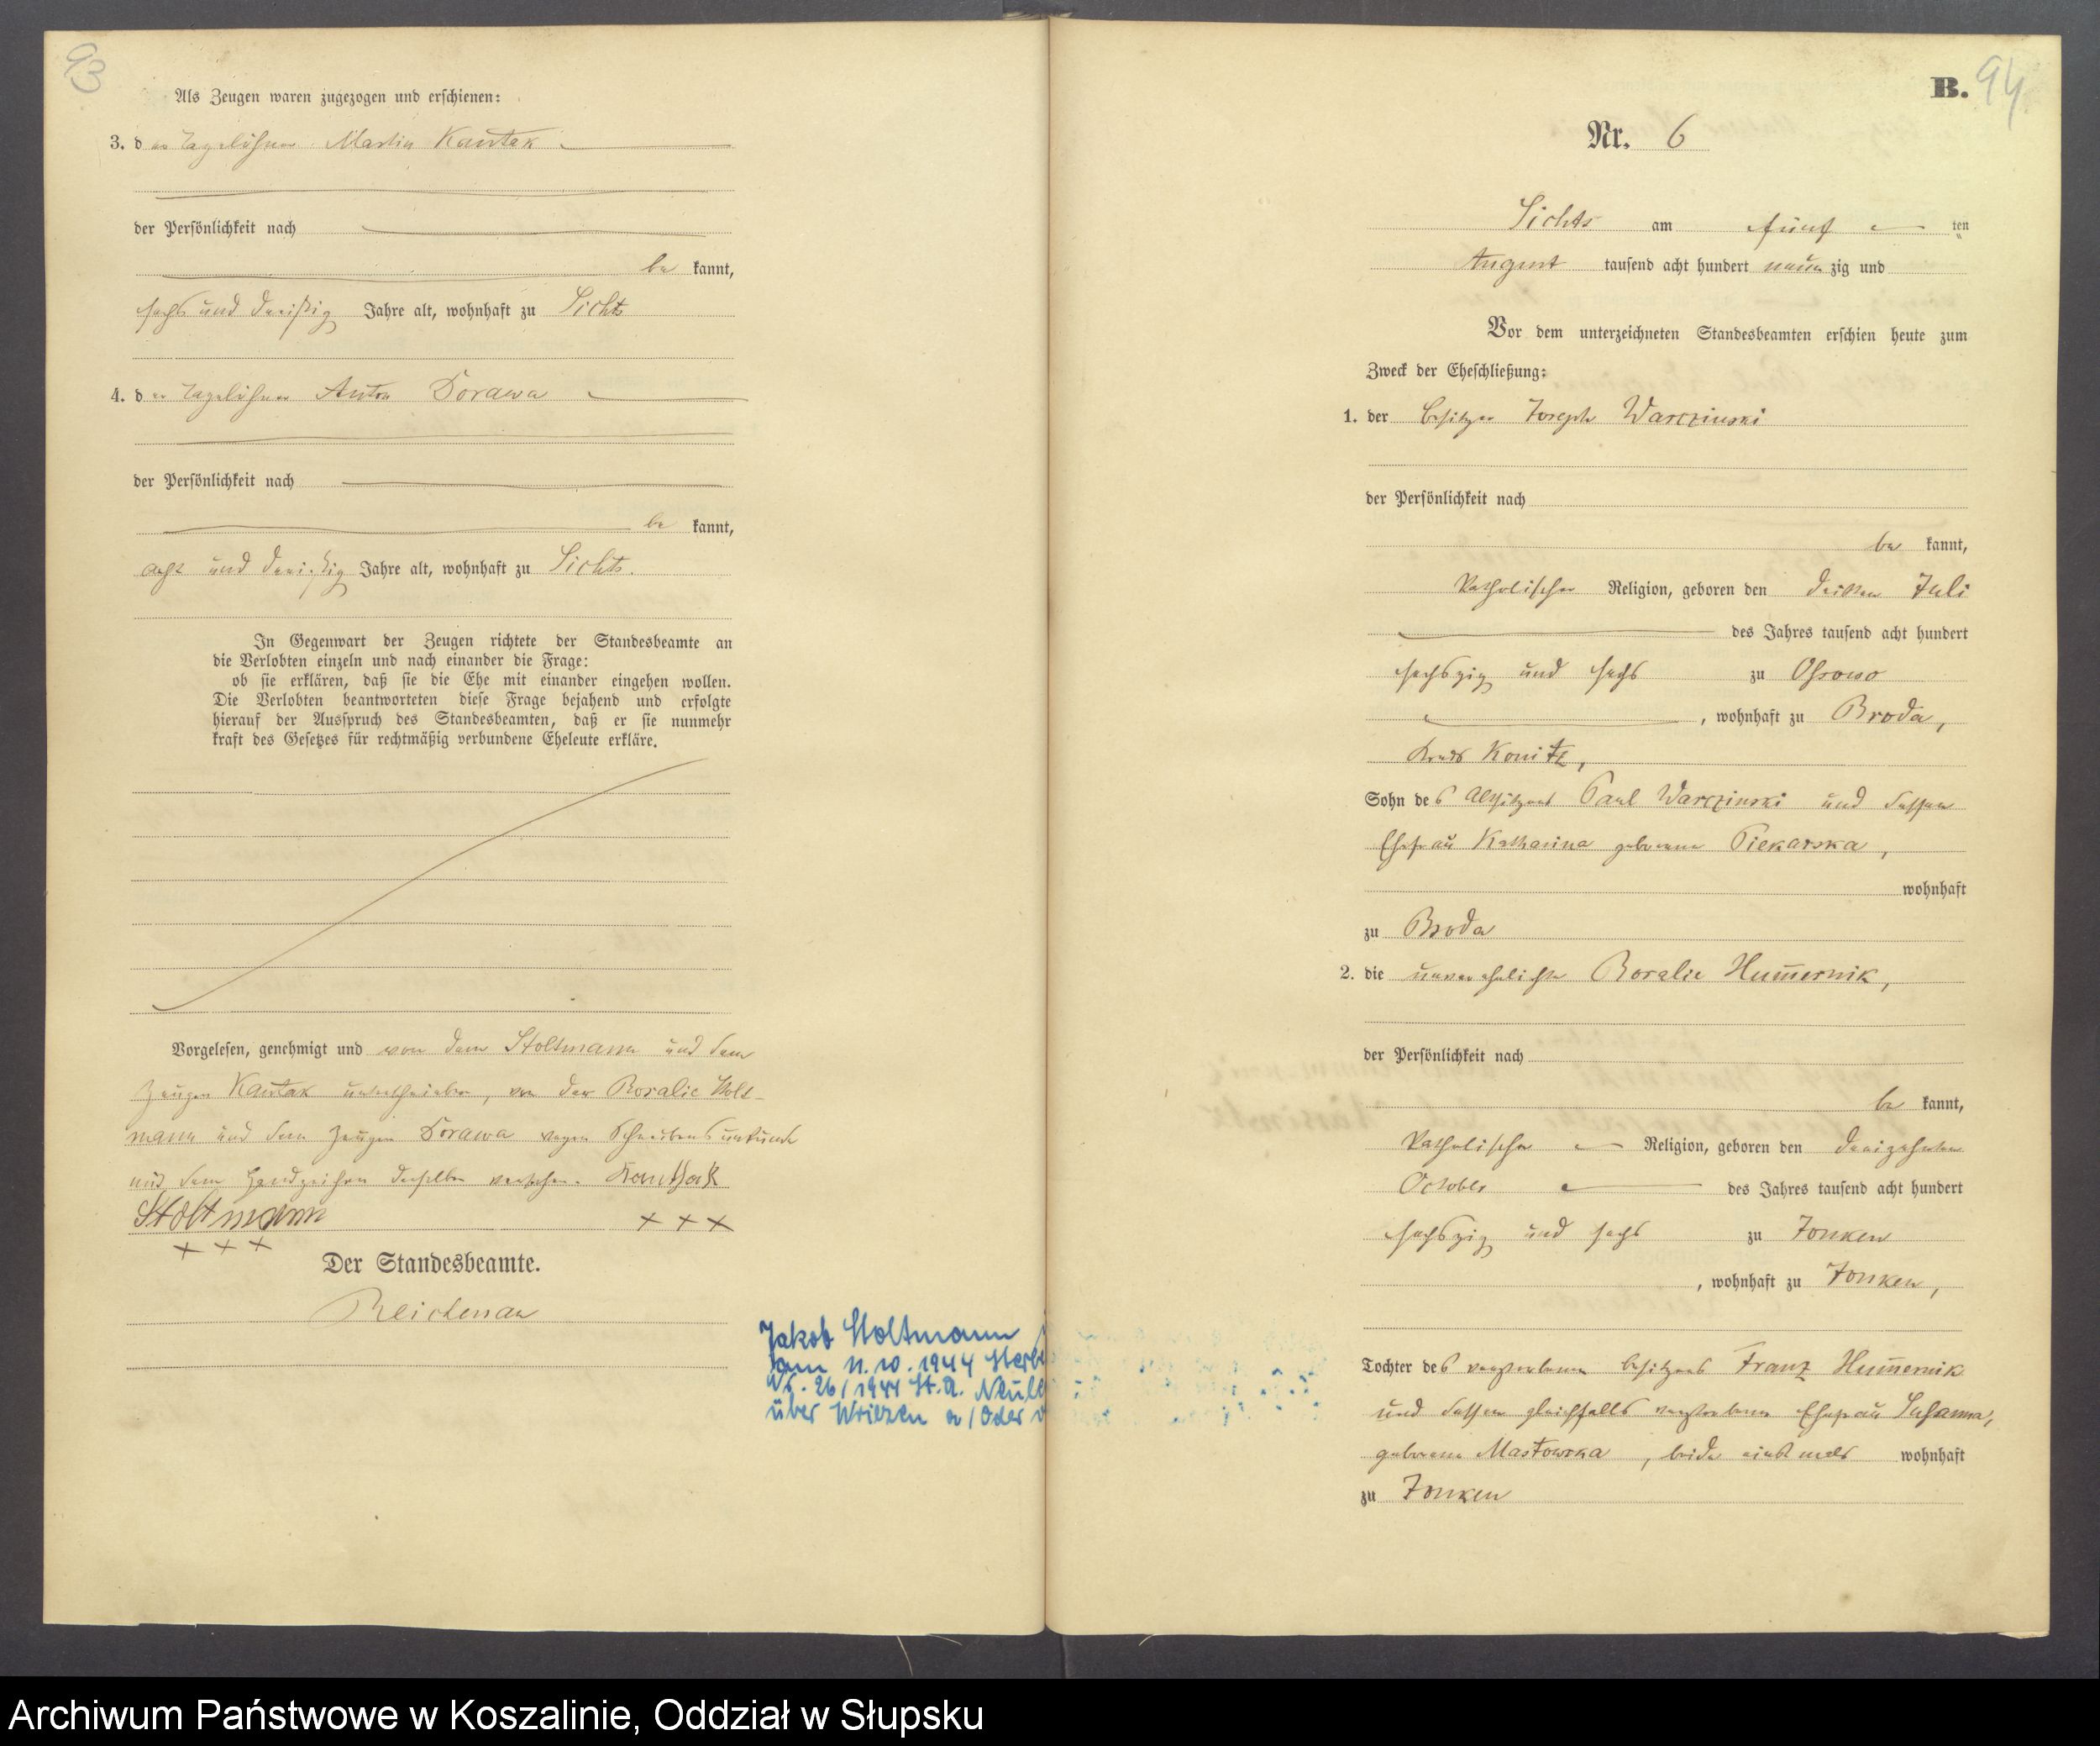 93
Als Zeugen waren zugezogen und erschienen:
3. der Tagelöhner Martin Kautak
der Persönlichkeit nach
be kannt,
sechs und dreißig Jahre alt, wohnhaft zu Lichts
4. der Tagelöhner Anton Dorawa
der Persönlichkeit nach
be kannt,
acht und dreißig Jahre alt, wohnhaft zu Lichts.
In Gegenwart der Zeugen richtete der Standesbeamte an
die Verlobten einzeln und nach einander die Frage:
ob sie erklären, daß sie die Ehe mit einander eingehen wollen.
Die Verlobten beantworteten diese Frage bejahend und erfolgte
hierauf der Ausspruch des Standesbeamten, daß er sie nunmehr
kraft des Gesetzes für rechtmäßig verbundene Eheleute erkläre.
Vorgelesen, genehmigt und von dem Stoltmann und dem
Zeugen Kautak unterschrieben, von der Rosalie Stolt-
mann und dem Zeugen Dorawa wegen Schreibensunkunde
mit dem Handzeichen derselben versehen.
Stoltmann + + +
+ + +
Der Standesbeamte.
Reichenau
Jakob Stoltmann
am 11.10.1944
Nr. 26/1944 St.A.
über Wriezen a/Oder
B. 94
Nr. 6
Lichts am fünf ten
August tausend acht hundert neun zig und
Vor dem unterzeichneten Standesbeamten erschien heute zum
Zweck der Eheschließung:
1. der Besitzer Joseph Warczinski
der Persönlichkeit nach
be kannt,
katholischer Religion, geboren den dritten Juli
des Jahres tausend acht hundert
sechszig und sechs zu Ossowo
, wohnhaft zu Broda,
Kreis Konitz,
Sohn des Altsitzers Paul Warczinski und dessen
Ehefrau Katharina geborene Piekarska,
wohnhaft
zu Broda
2. die unverehelichte Rosalie Hum̄ernik,
der Persönlichkeit nach
be kannt,
katholischer Religion, geboren den dreizehnten
October des Jahres tausend acht hundert
sechszig und sechs zu Zonken
, wohnhaft zu Zonken,
Tochter des verstorbenen Besitzers Franz Hum̄ernik
und dessen gleichfalls verstorbenen Ehefrau Susanna,
geborene Masłowska, beide wohnhaft
zu Zonken
Archiwum Państwowe w Koszalinie, Oddział w Słupsku